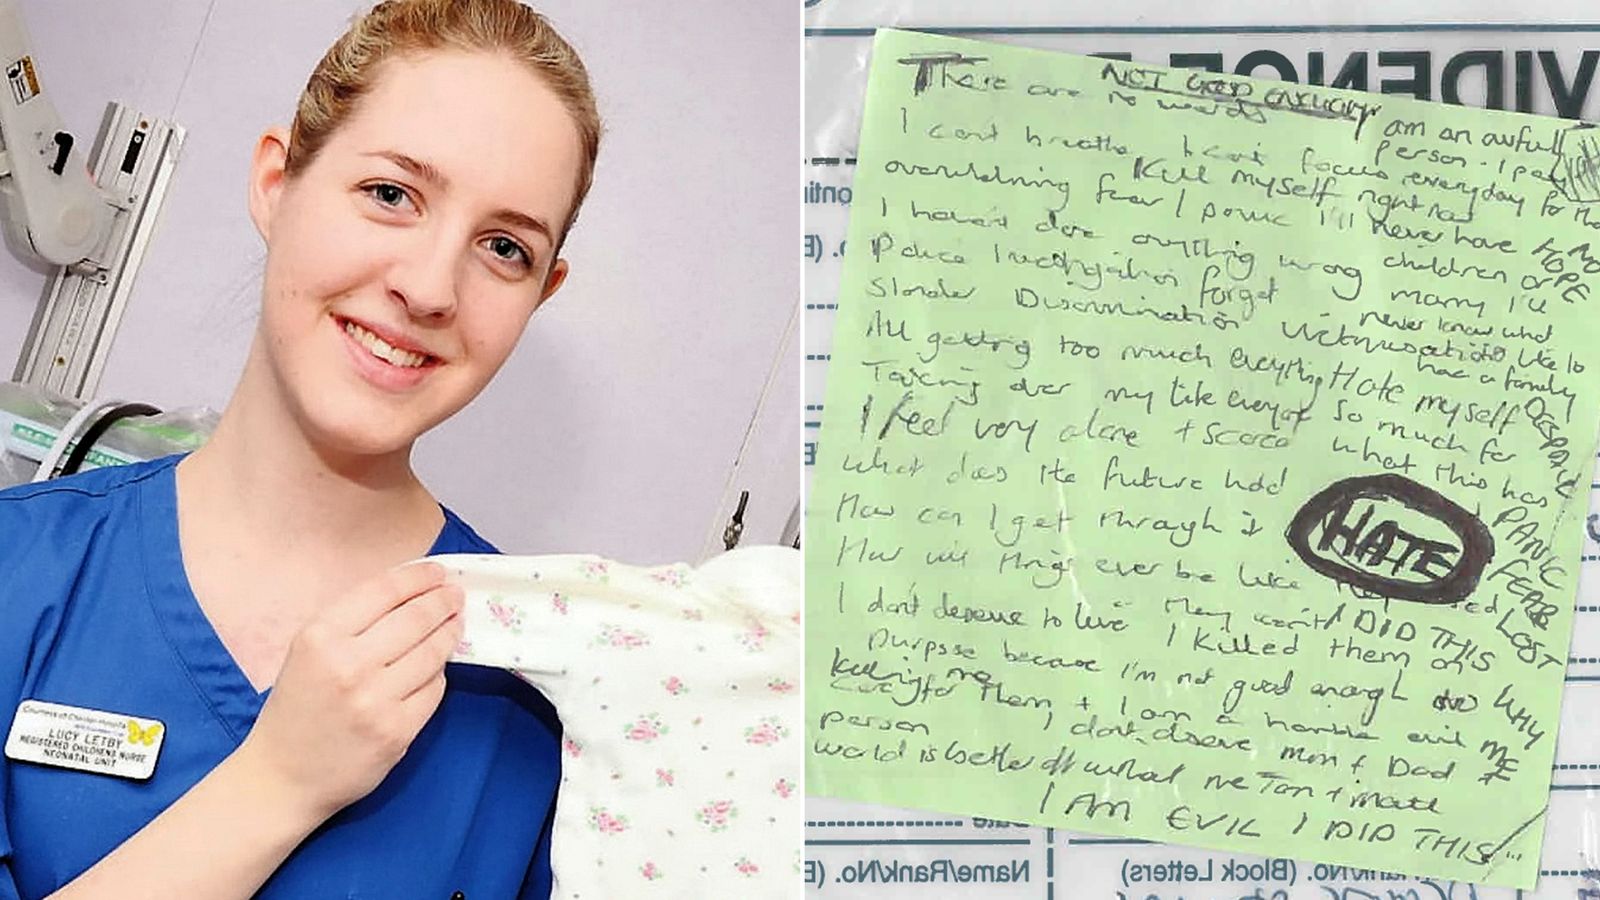 Countess of Chester Hospital
LUCY LETBY
REGISTERED CHILDRENS NURSE
NEONATAL UNIT
VIDENCE
NOT GOOD ENOUGH
There are no words
I am an awful person - I pay everyday for that
I can't breathe I can't focus
Kill myself right now
overwhelming fear / panic
I'll never have children or marry I'll never know what it's like to have a family
NO HOPE
I haven't done anything wrong
Police investigation forget
Slander Discrimination Victimisation
All getting too much everything
Hate myself so much for what this has
Taking over my life
DESPAIR
PANIC
FEAR
LOST
I feel very alone + scared
What does the future hold
How can I get through it
HATE
How will things ever be like
I don't deserve to live
They won't
I DID THIS
WHY ME
I killed them on
purpose because I'm not good enough to
care for them + I am a horrible evil
person
killing me
I don't deserve mum + Dad
world is better off without me
I AM EVIL I DID THIS
Name/Rank/No.
No. (Block Letters)